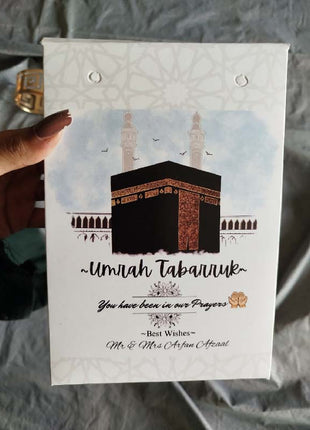 ~Umrah Tabarruk~
You have been in our Prayers
~Best Wishes~
Mr & Mrs Arfan Afzaal